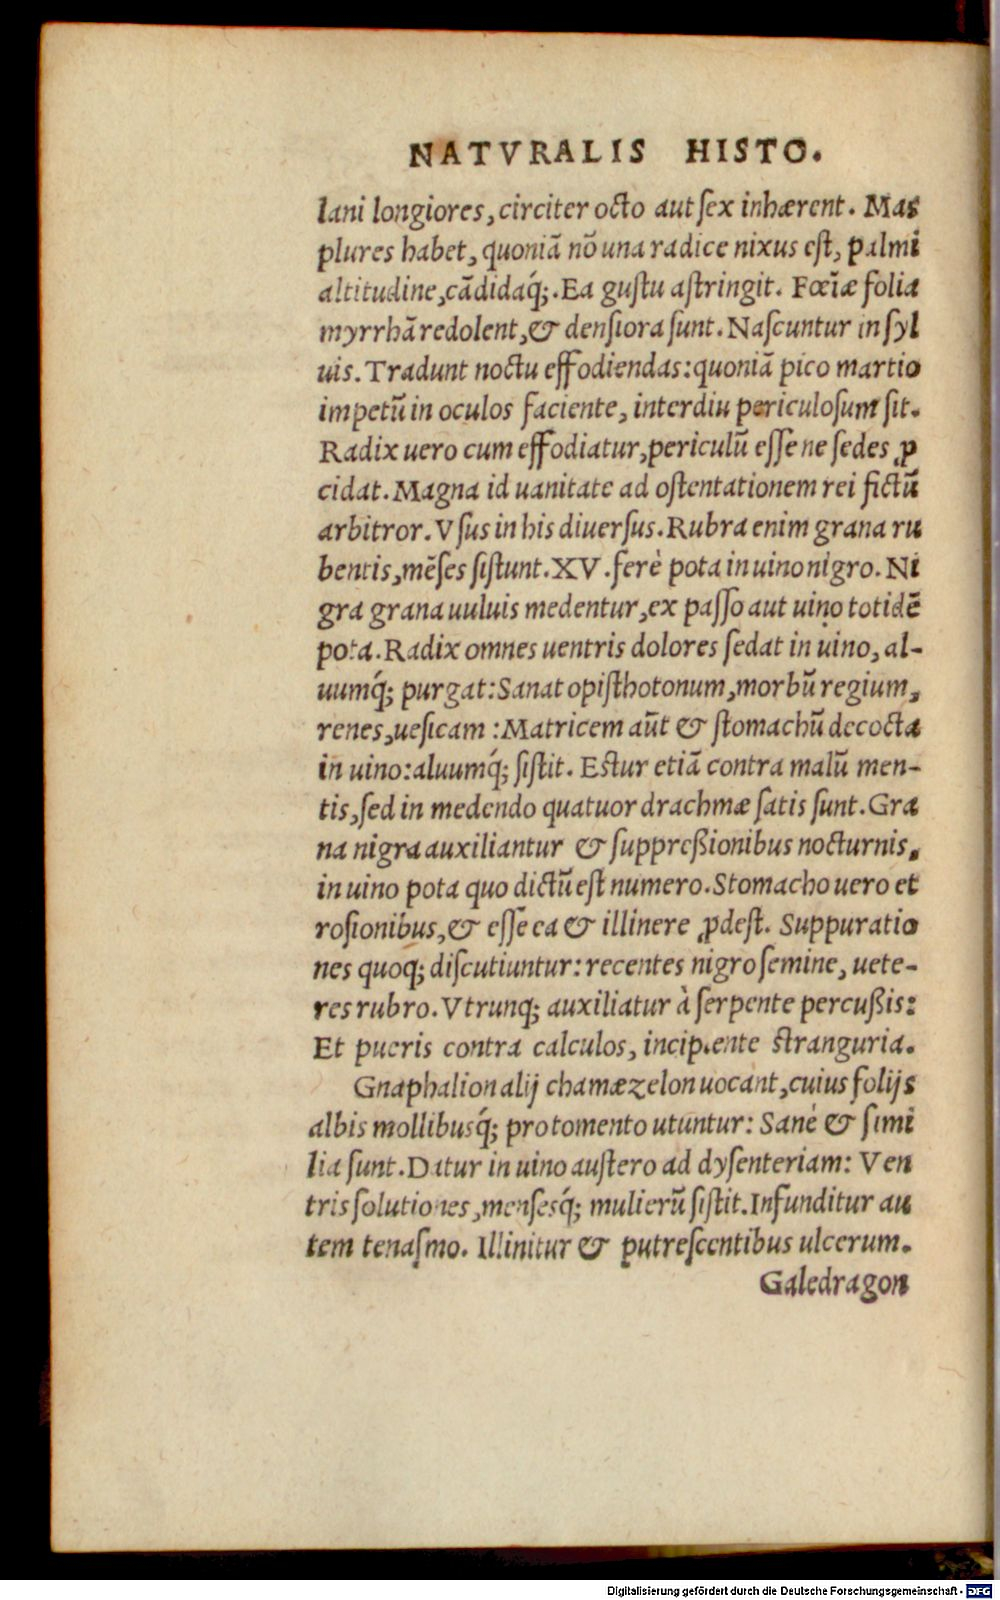 NATVRALIS HISTO.
lani longiores, circiter octo aut sex inhærent. Mas
plures habet, quoniã nõ una radice nixus est, palmi
altitudine, cãdidaq́;. Ea gustu astringit. Fœĩæ folia
myrrhã redolent, & densiora sunt. Nascuntur in syl
uis. Tradunt noctu effodiendas: quoniã pico martio
impetũ in oculos faciente, interdiu periculosum sit.
Radix uero cum effodiatur, periculũ esse ne sedes ꝓ
cidat. Magna id uanitate ad ostentationem rei fictũ
arbitror. Vsus in his diuersus. Rubra enim grana ru
bentis, mẽses sistunt. XV. ferè pota in uino nigro. Ni
gra grana uuluis medentur, ex passo aut uino totidẽ
pota. Radix omnes uentris dolores sedat in uino, al-
uumq́; purgat: Sanat opisthotonum, morbũ regium,
renes, uesicam: Matricem aũt & stomachũ decocta
in uino: aluumq́; sistit. Estur etiã contra malũ men-
tis, sed in medendo quatuor drachmæ satis sunt. Gra
na nigra auxiliantur & suppreßionibus nocturnis,
in uino pota quo dictũ est numero. Stomacho uero et
rosionibus, & esse ea & illinere ꝓdest. Suppuratio
nes quoq; discutiuntur: recentes nigro semine, uete-
res rubro. Vtrunq; auxiliatur à serpente percußis:
Et pueris contra calculos, incipiente stranguria.
Gnaphalion alij chamæzelon uocant, cuius folijs
albis mollibusq́; pro tomento utuntur: Sanè & simi
lia sunt. Datur in uino austero ad dysenteriam: Ven
tris solutiones, mensesq́; mulierũ sistit. Infunditur au
tem tenasmo. Illinitur & putrescentibus ulcerum.
Galedragon
Digitalisierung gefördert durch die Deutsche Forschungsgemeinschaft - DFG